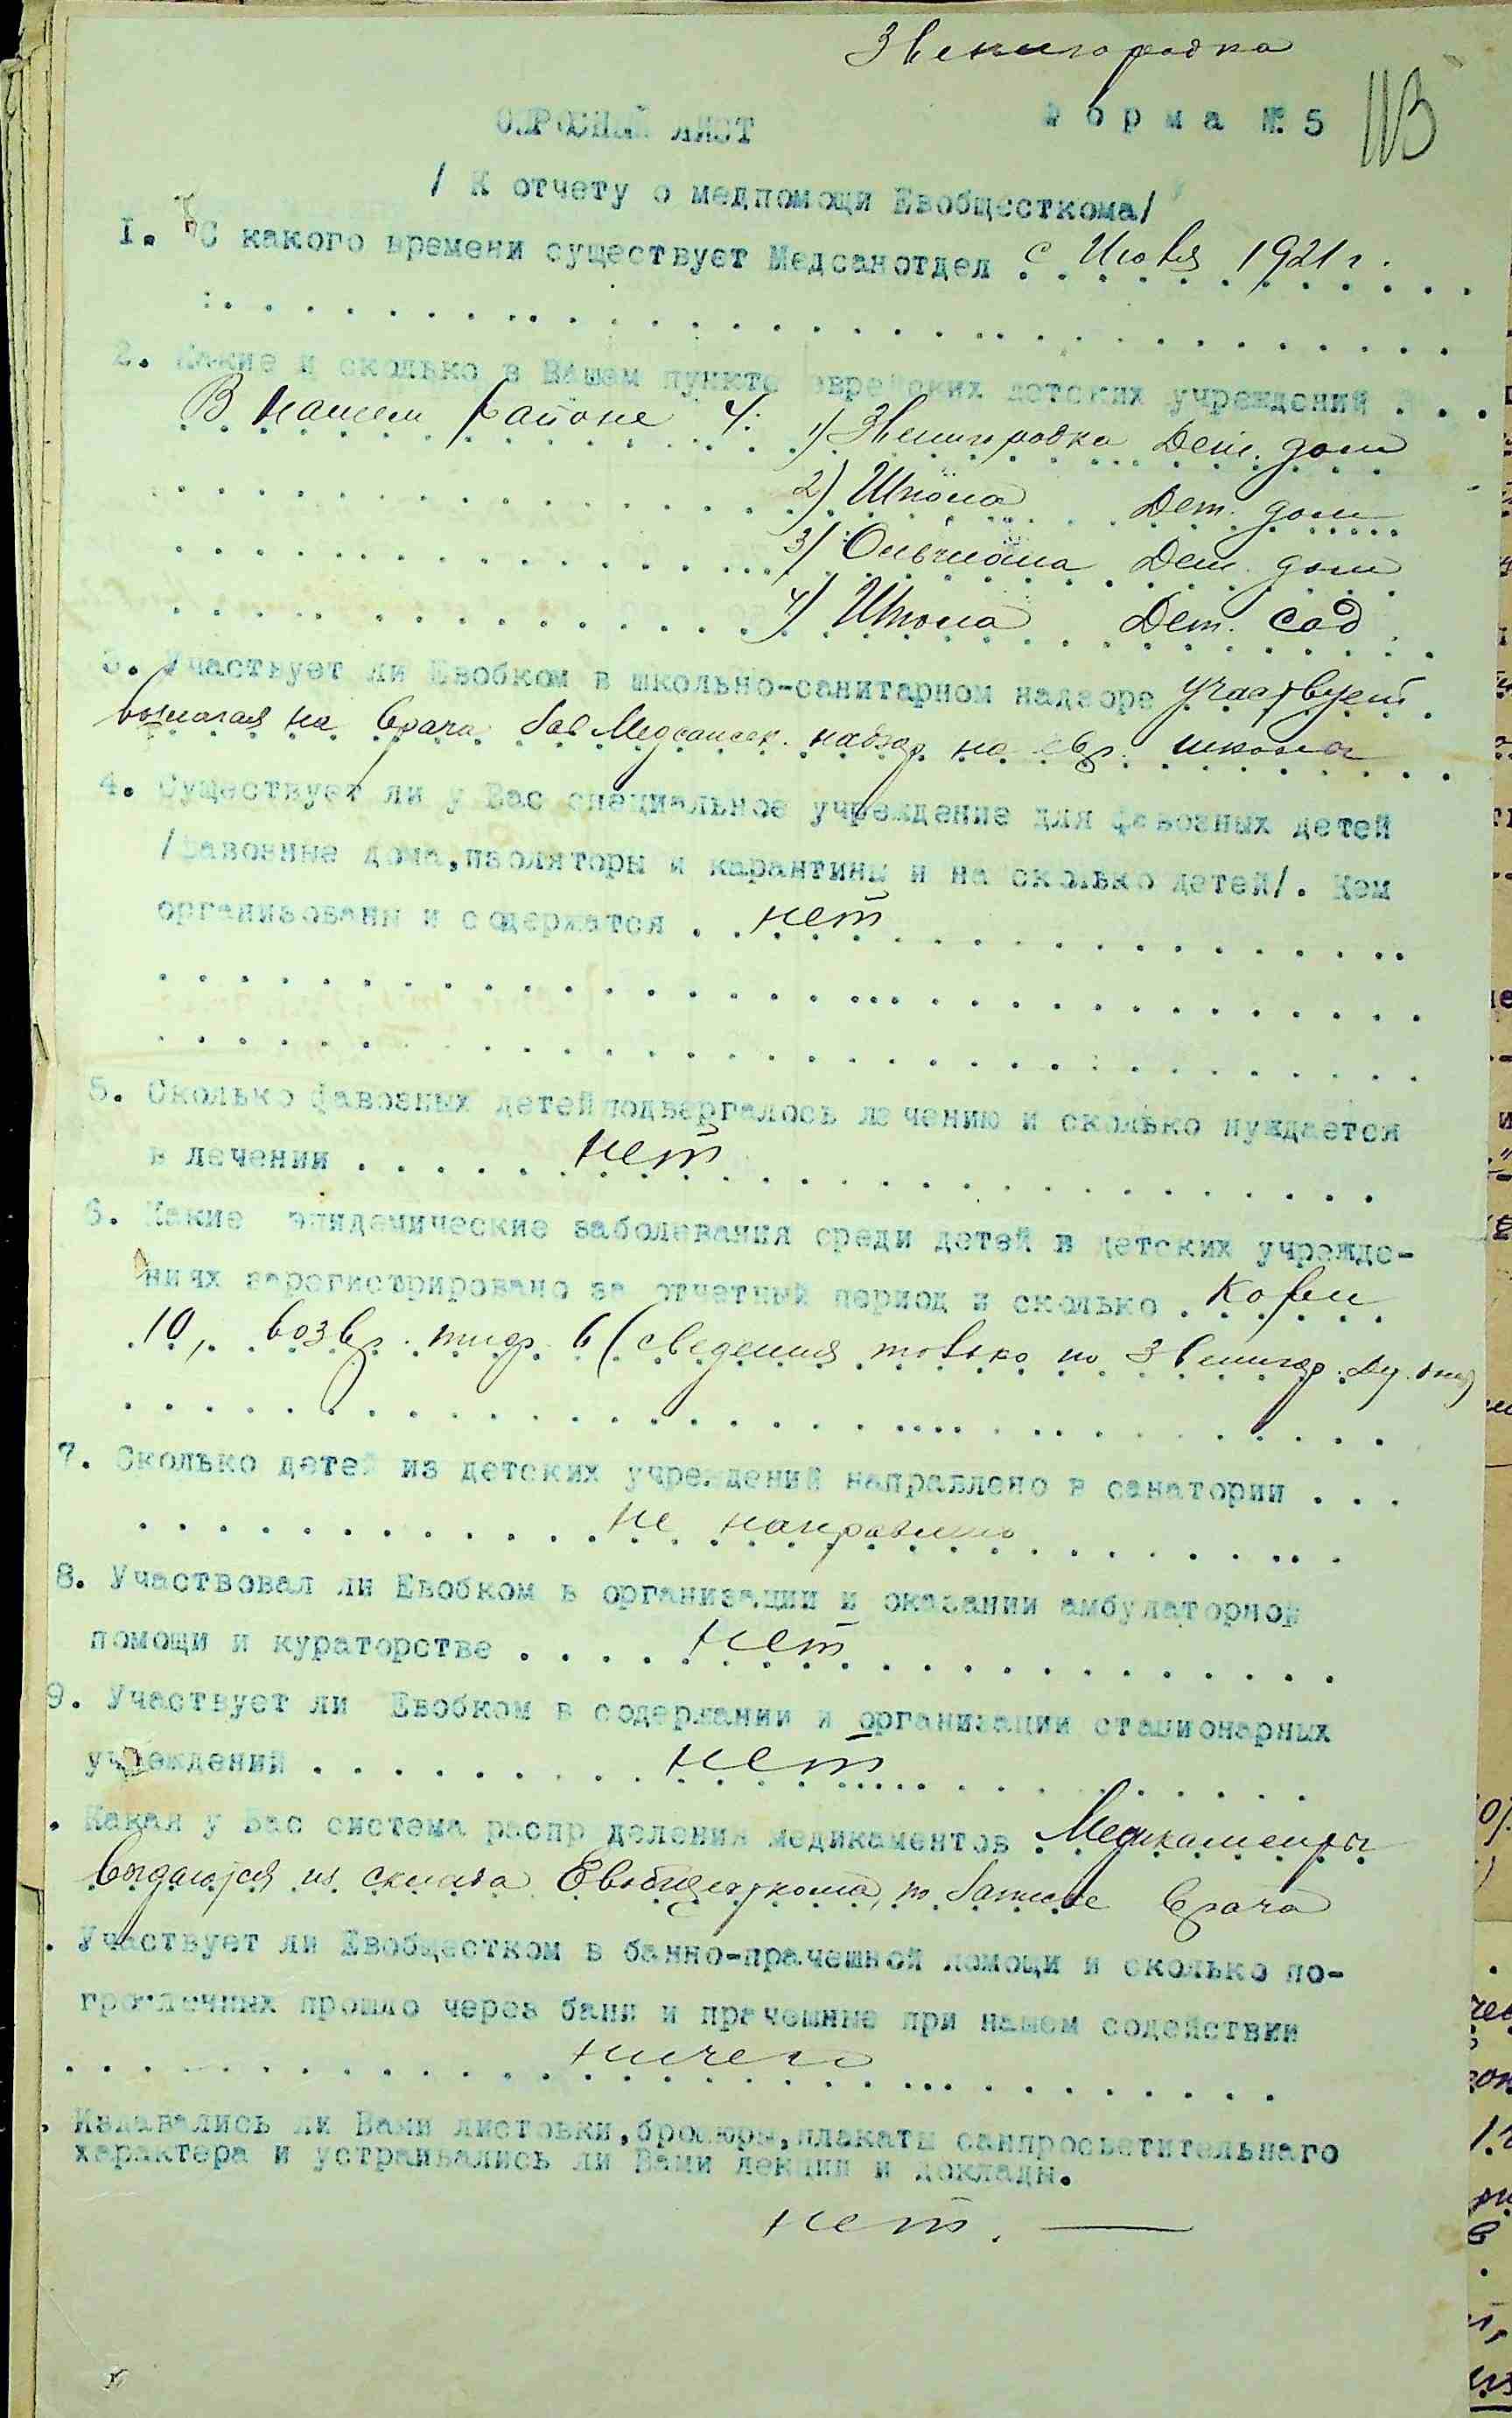 Звенигородка
ОПРОСНЫЙ ЛИСТ Форма №.5 113
/ К отчету о медпомощи Евобщесткома/
I. С какого времени существует Медсанотдел с Июля 1921 г.
2. Какие и сколько в Вашем пункте еврейских детских учреждений
В нашем районе 4: 1) Звенигородка Дет. дом
2) Шпола Дет. дом
3) Ольшана Дет. дом
4) Шпола Дет. сад
3. Участвует ли Евобком в школьно-санитарном надзоре участвует
возлагая на врача Зав Медсансек. надзор на евр. школы
4. Существует ли у Вас специальное учреждение для фавозных детей
/фавозные дома,изоляторы и карантины и на сколько детей/. Кем
организованы и содержатся . . нет
5. Сколько фавозных детей подвергалось лечению и сколько нуждается
в лечении . . . . . нет
6. Какие эпидемические заболевания среди детей в детских учрежде-
ниях зарегистрировано за отчетный период и сколько . Кори
10, возвр. тиф 6 (сведения только по Звенигор.
7. Сколько детей из детских учреждений направлено в санатории . . .
не направлено
8. Участвовал ли Евобком в организации и оказании амбулаторной
помощи и кураторстве . . . . нет
9. Участвует ли Евобком в содержании и организации стационарных
учреждений . . . . . . . . . нет
. Какая у Вас система распр деления медикаментов Медикаменты
выдаются из склада Евобщесткома, по записке врача
. Участвует ли Евобщестком в банно-прачешной помощи и сколько по-
громленных прошло через бани и прачешные при нашем содействии
ничего
. Издавались ли Вами листовки,брошюры,плакаты санпросветительнаго
характера и устраивались ли Вами лекции и доклады.
нет. —